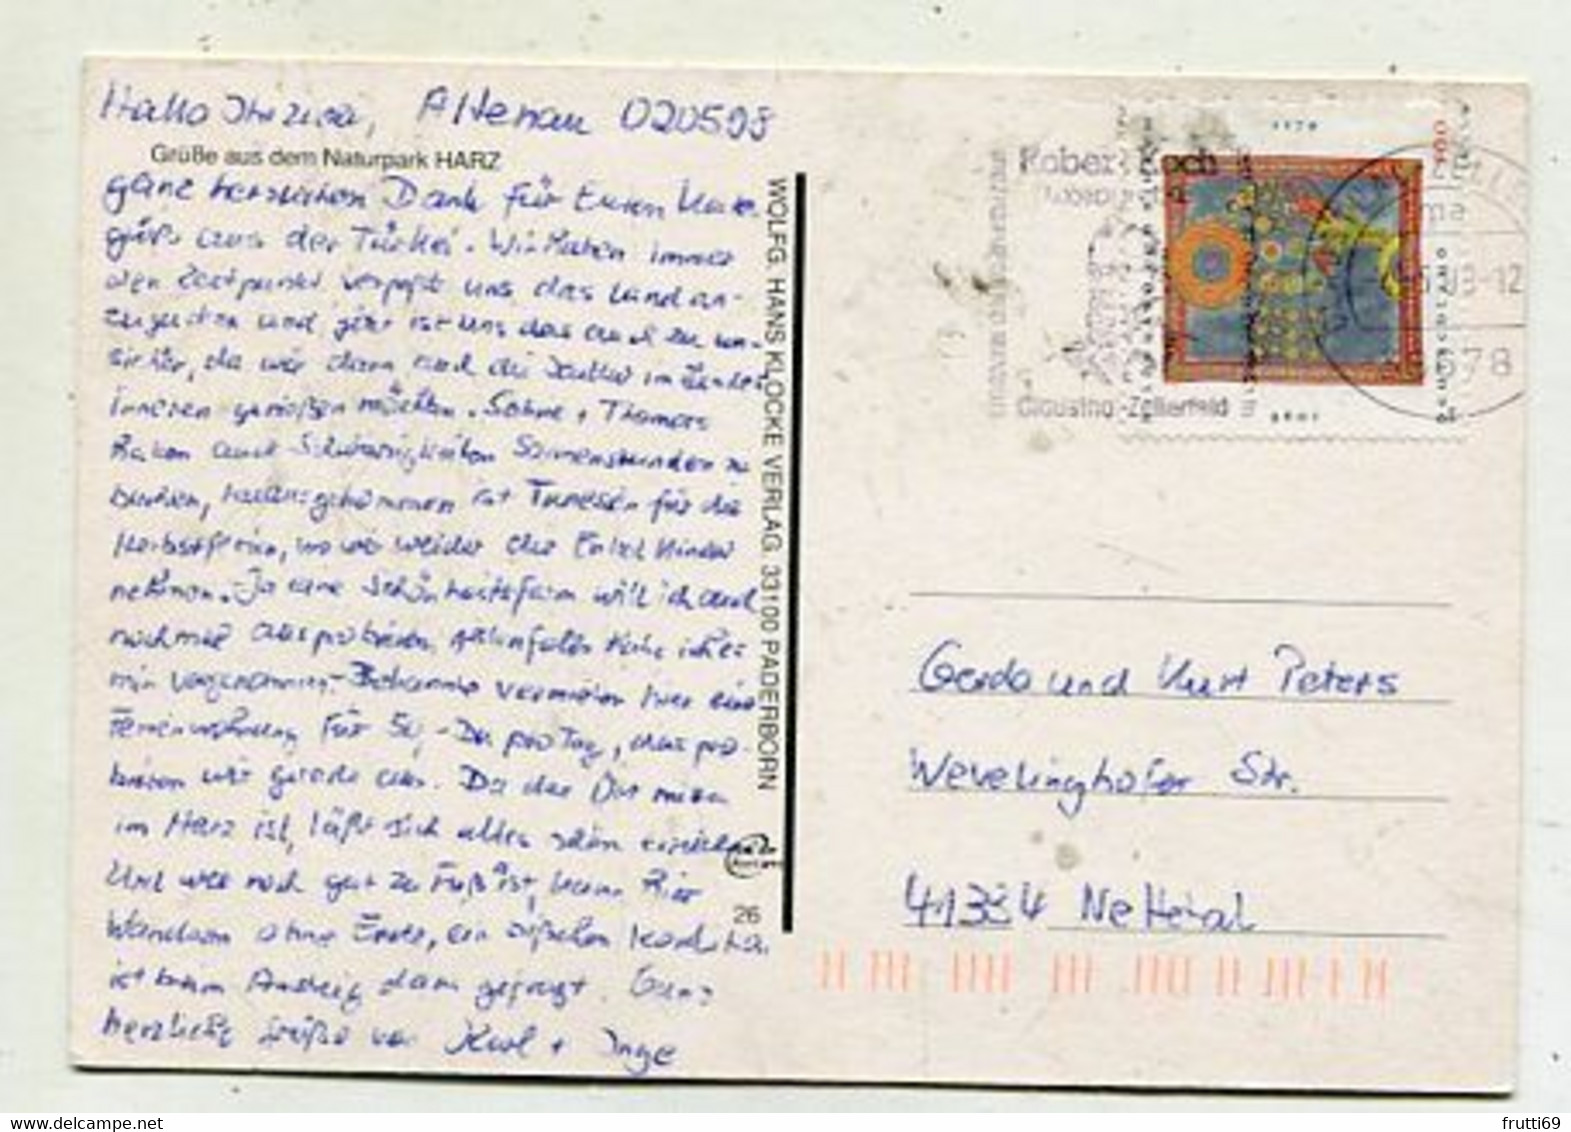 Hallo Ihr zwei, Altenau 020598
Grüße aus dem Naturpark HARZ
ganz herzlichen Dank für Euren Karten
grüß aus der Türkei. Wir haben immer
den Zeitpunkt verpaßt uns das Land an-
zugucken und jetzt ist uns das auch zu un-
sicher, da wir dann auch die Kultur im Landes
inneren genießen möchten. Söhne + Thomas
haben auch Schwierigkeiten Sonnenstunden zu
buchen, rausgekommen ist Tunesien für die
Herbstferien, wo wir wieder die Enkelkinder
nehmen. Ja eine Schönheitsfarm will ich auch
noch mal ausprobieren, jedenfalls habe ich es
mir vorgenommen. Bekannte vermieten hier eine
Ferienwohnung für 50,- DM pro Tag, das pro-
bieren wir gerade aus. Da der Ort mitten
im Harz ist, läßt sich alles schön erreichen
Und wer noch gut zu Fuß ist, kann hier
Wandern ohne Ende, ein bißchen Kondition
ist beim Anstieg dann gefragt. Ganz
herzliche Grüße von Karl + Inge
WOLFG. HANS KLOCKE VERLAG 33100 PADERBORN
26
Robert Koch
Clausthal-Zellerfeld
100
-12
Gerda und Kurt Peters
Wevelinghofer Str.
41334 Nettetal
delcampe.net
frutti69